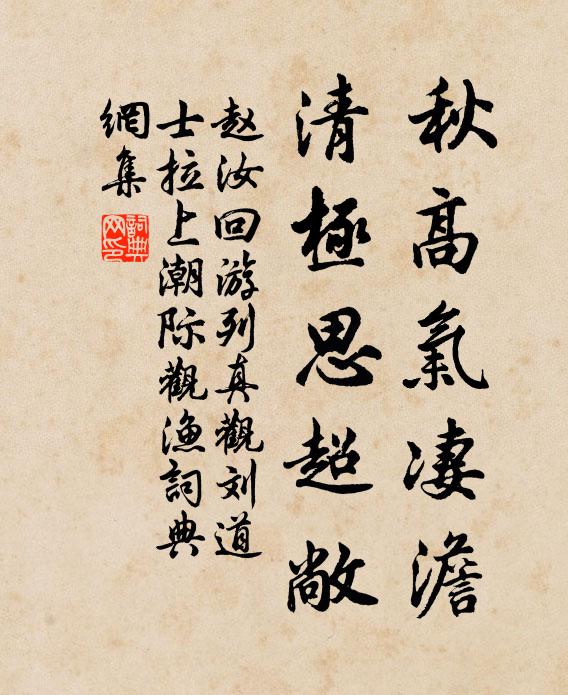 秋高氣凄澹
清極思超敞
赵汝回游列真觀刘道
士拉上潮际觀漁詞典
網集
詞典网印